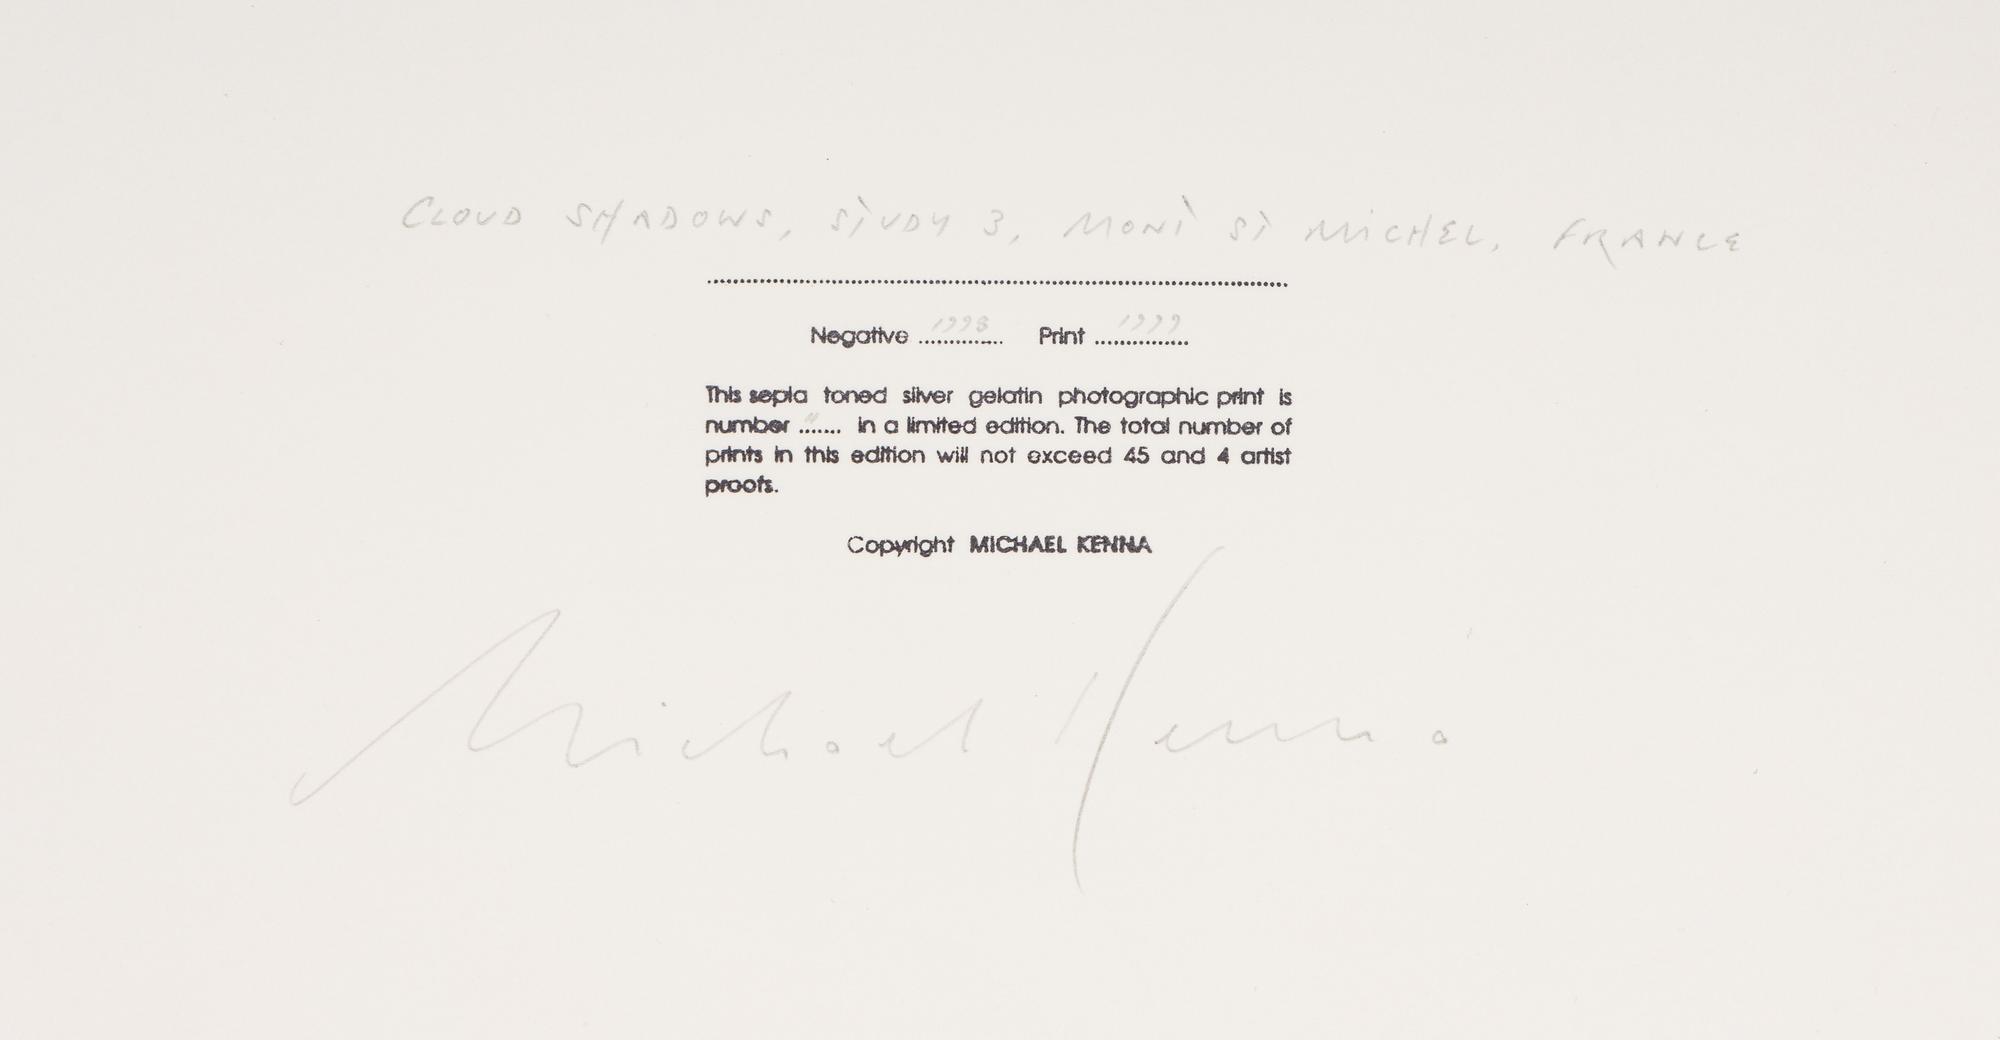 CLOUD SHADOWS, STUDY 3, MONT ST MICHEL, FRANCE
Negative 1998 Print 1999
This sepia toned silver gelatin photographic print is
number ....... in a limited edition. The total number of
prints in this edition will not exceed 45 and 4 artist
proofs.
Copyright MICHAEL KENNA
Michael Kenna